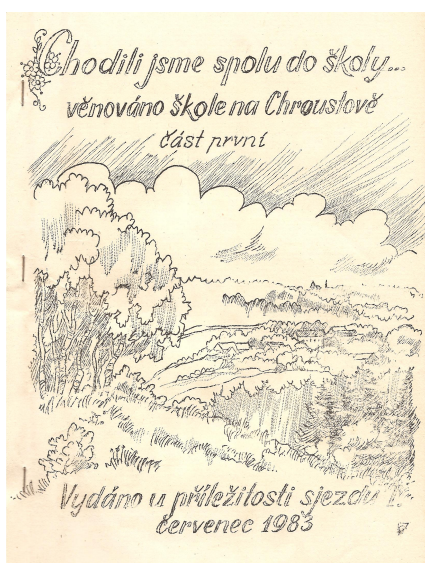 Chodili jsme spolu do školy...
věnováno škole na Chroustově
část první
Vydáno u příležitosti sjezdu
červenec 1983